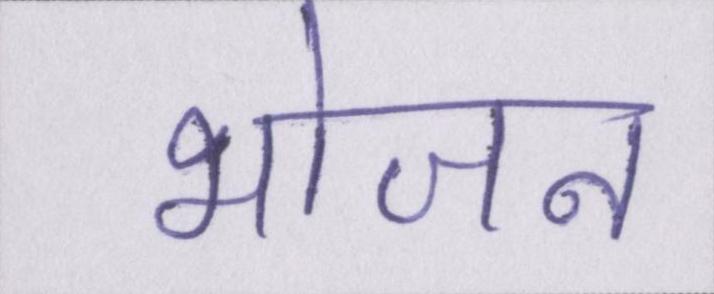 भोजन